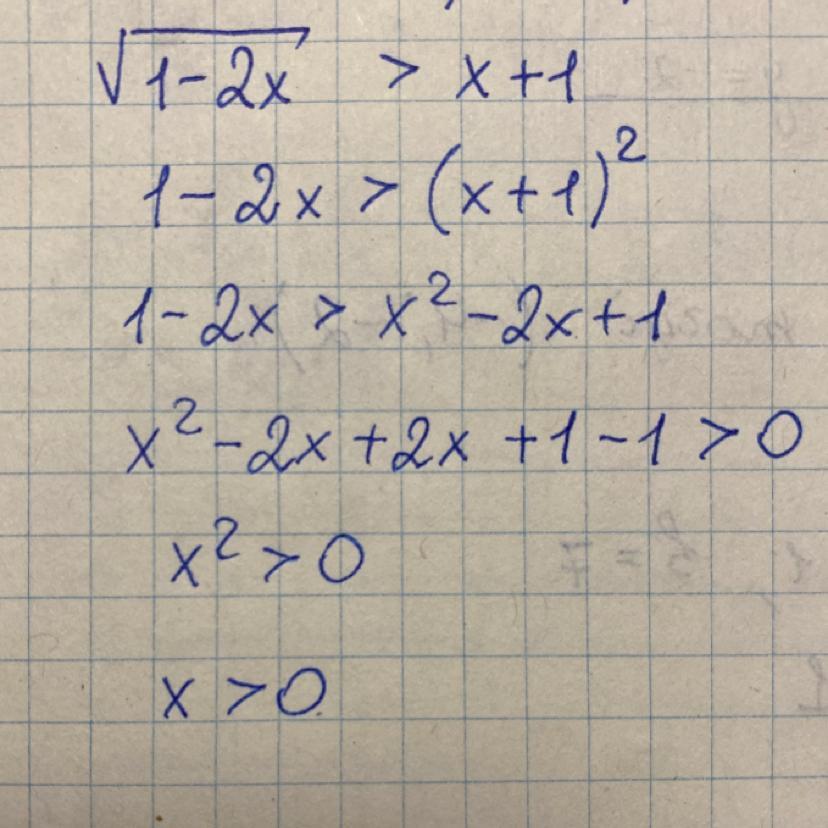 √(1-2x) > x+1
1-2x > (x+1)²
1-2x > x²-2x+1
x²-2x+2x+1-1>0
x²>0
x>0